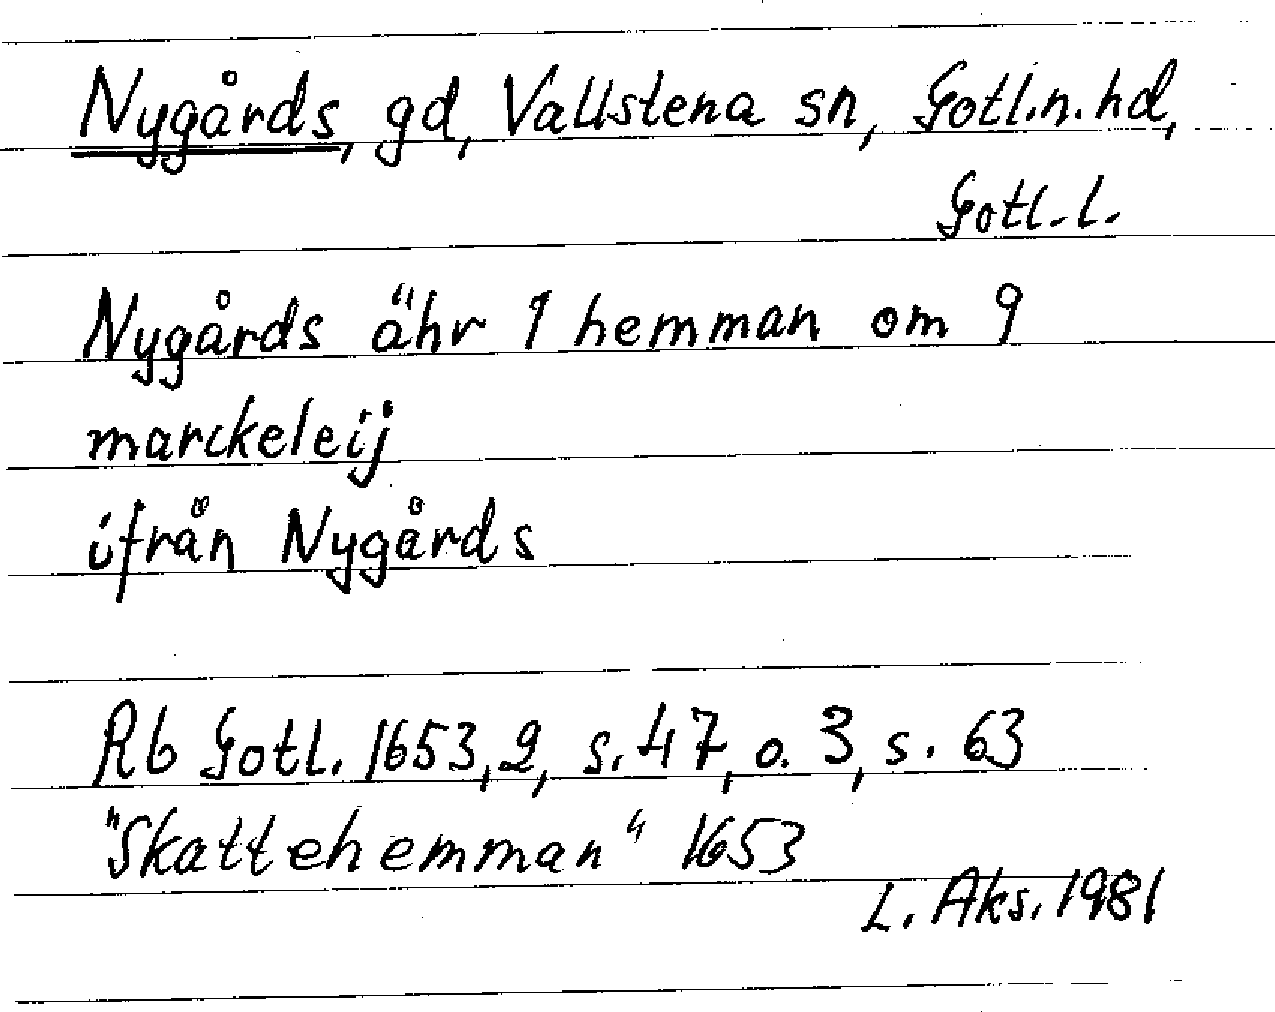 Nygårds, gd, Vallstena sn, Gotl.n.hd,
Gotl. l.
Nygårds ähr 1 hemman om 9
marckeleij
ifrån Nygårds
Rb Gotl. 1653,2, s. 47, o. 3, s. 63
"Skattehemman" 1653
L. Aks. 1981